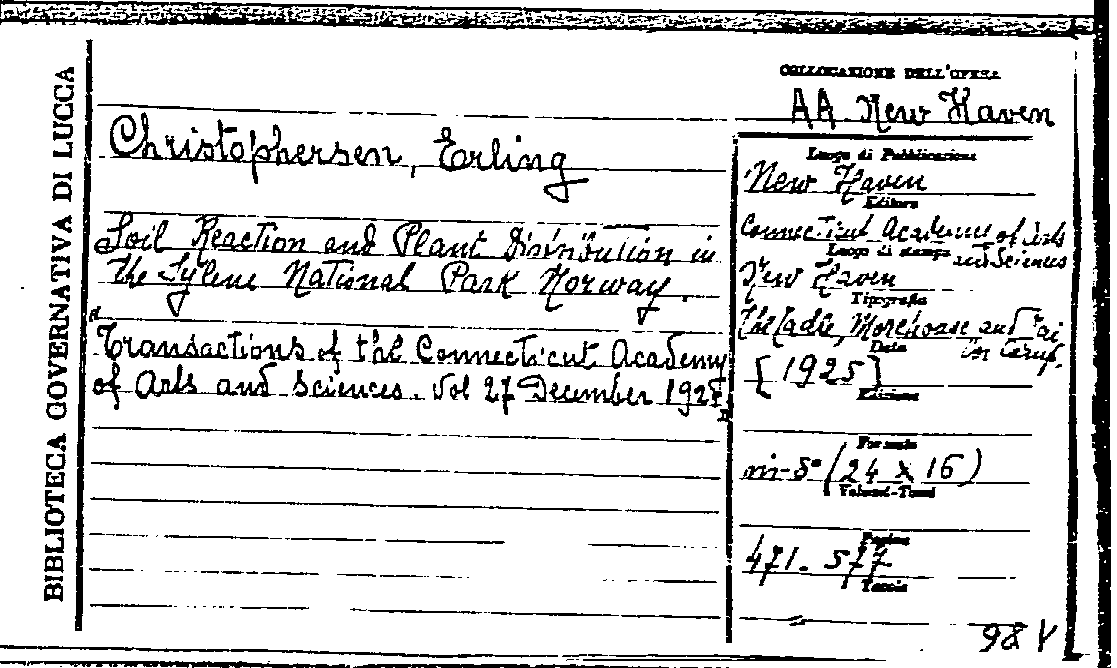 BIBLIOTECA GOVERNATIVA DI LUCCA
COLLOCAZIONE DELL'OPERA
AA New Haven
Christophersen, Erling
Soil Reaction and Plant Distribution in
the Sylene National Park Norway.
"Transactions of the Connecticut Academy
of Arts and Sciences. Vol 27 December 1925"
Luogo di Pubblicazione
New Haven
Editore
Connecticut Academy of Arts
and Sciences
Luogo di stampa
New Haven
Tipografia
The Morehouse and
Data
[1925]
Edizione
Formato
in-8° (24 x 16)
Volumi-Tomi
Pagine
471-577
Tavole
98